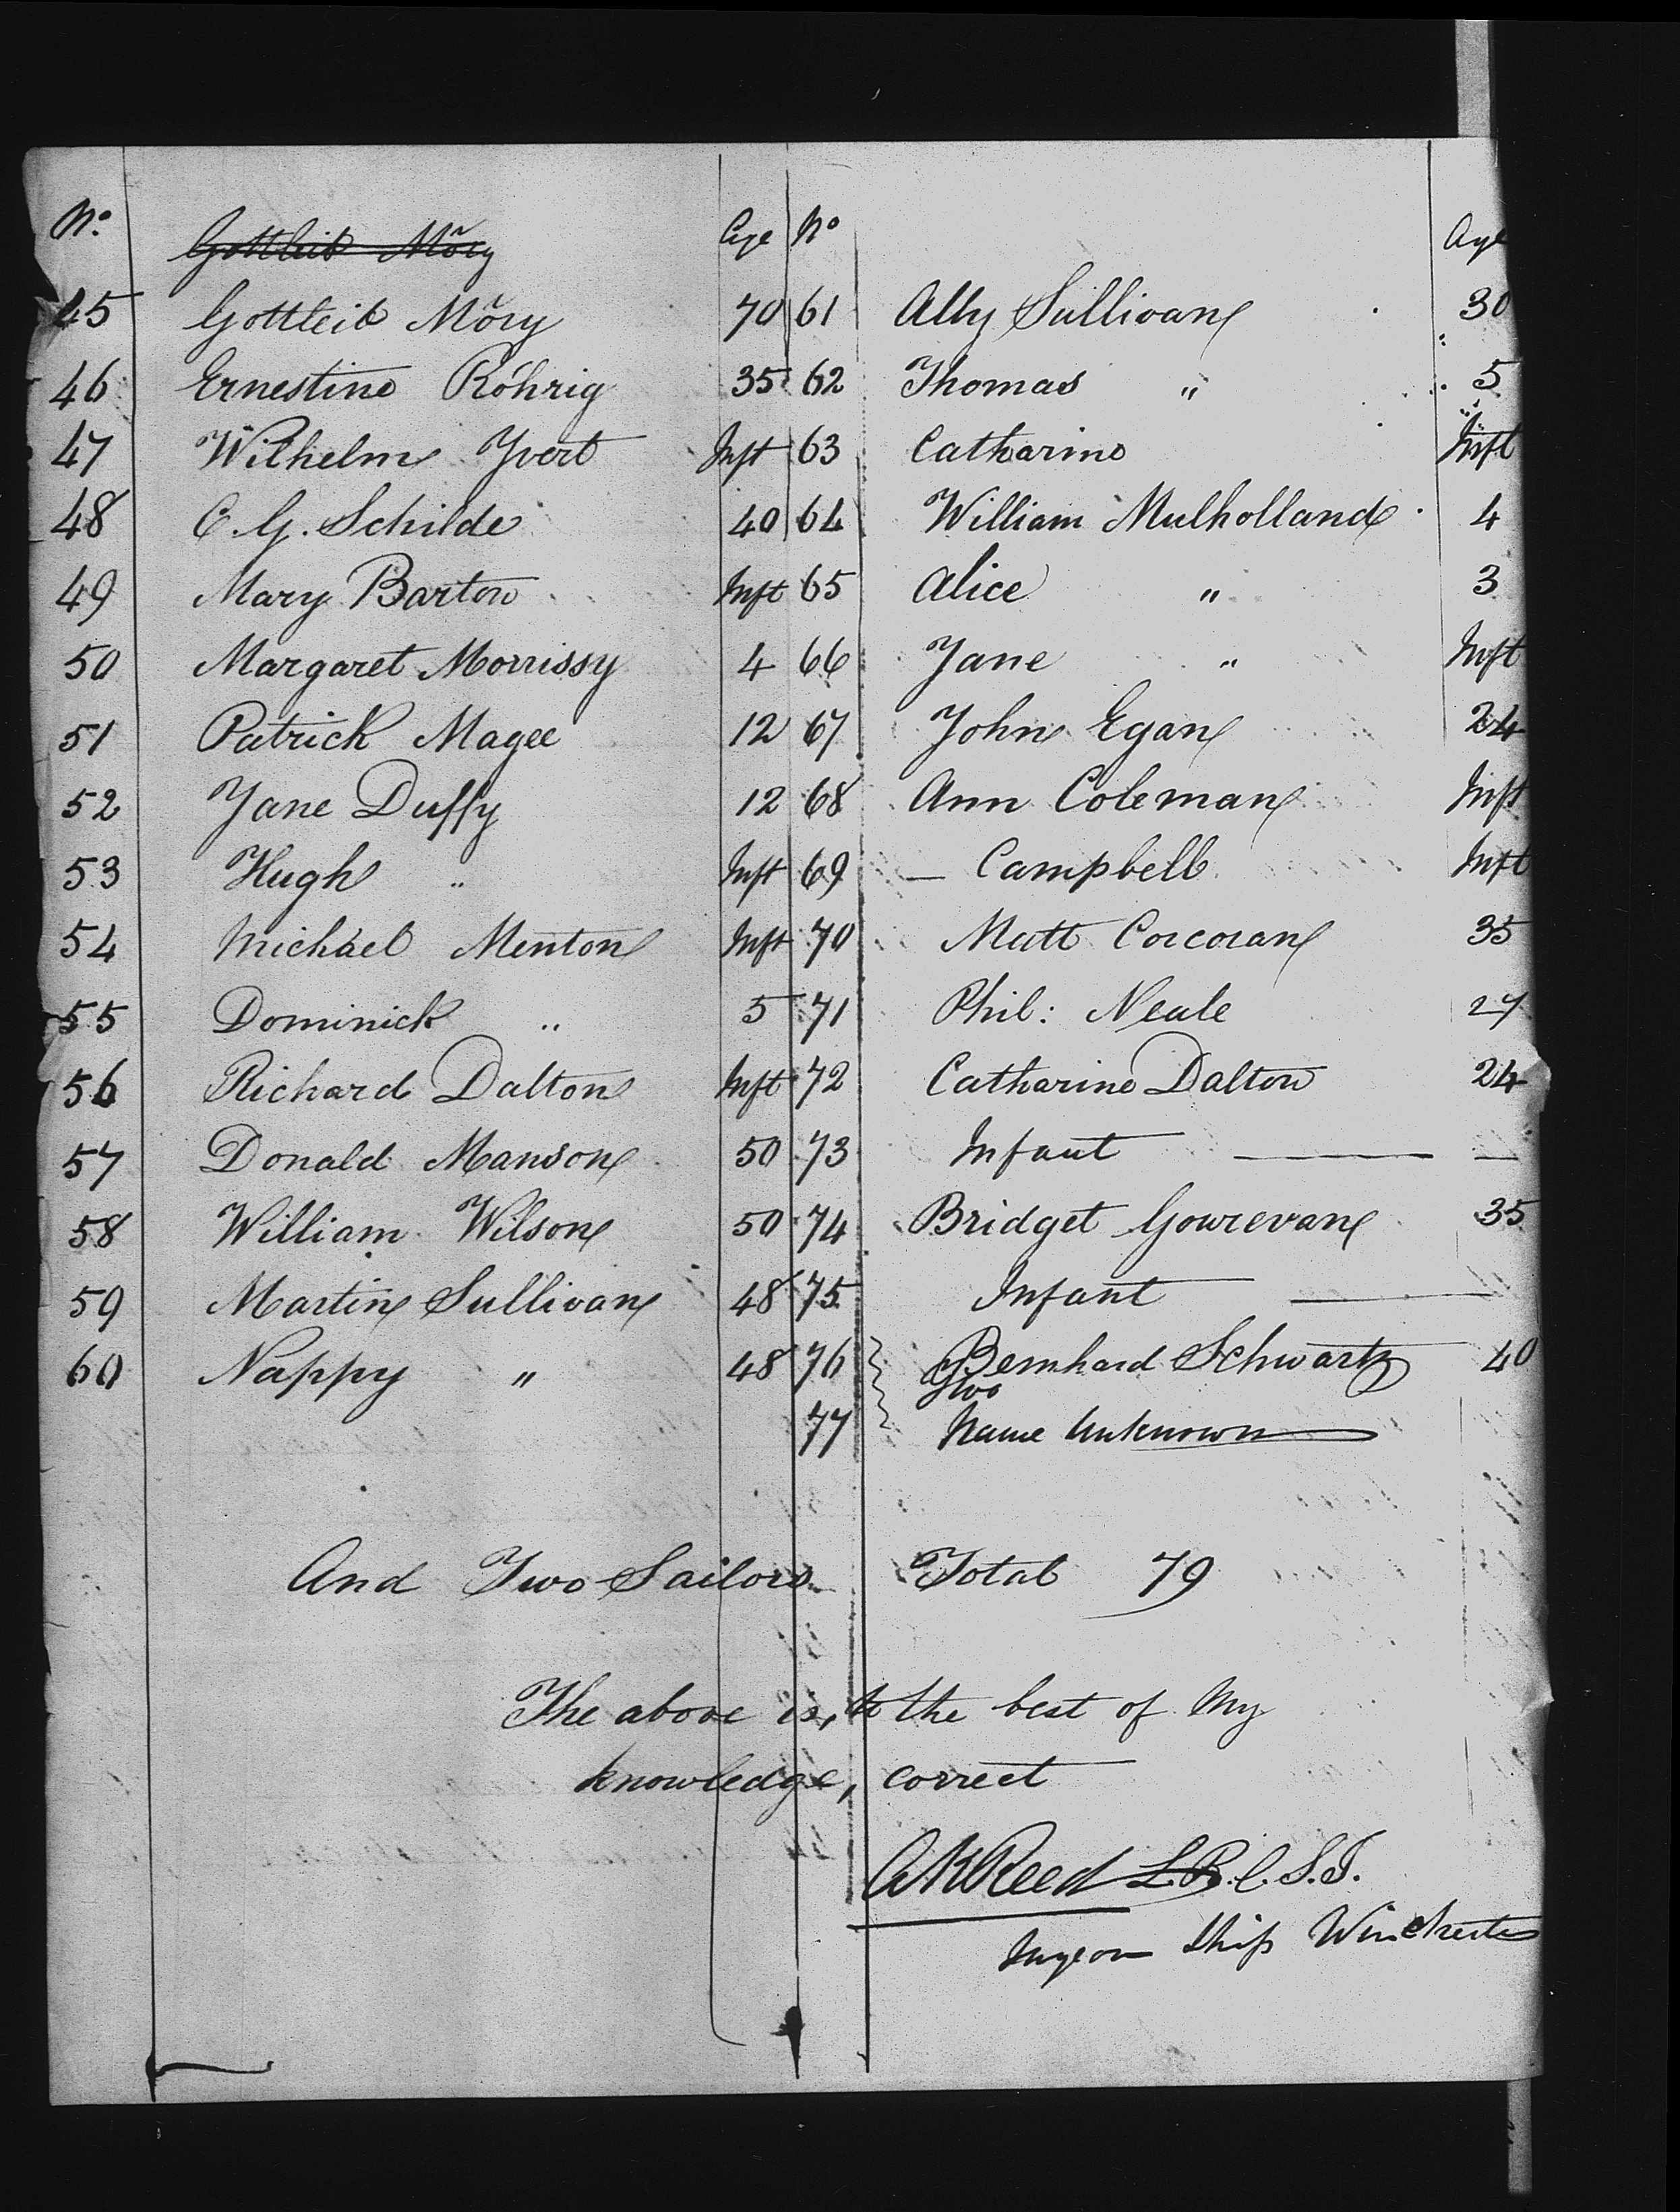 No. Age No Age
Gottleib Mõry
45 Gottleib Mõry 70 61 Ally Sullivan 30
46 Ernestine Röhrig 35 62 Thomas " 5
47 Wilhelm Yvert Inft 63 Catharine Inft
48 C. G. Schilde 40 64 William Mulholland 4
49 Mary Barton Inft 65 Alice " 3
50 Margaret Morrissy 4 66 Jane " Inft
51 Patrick Magee 12 67 John Egan 24
52 Jane Duffy 12 68 Ann Coleman Inft
53 Hugh " Inft 69 — Campbell Inft
54 Michael Menton Inft 70 Matt Corcoran 35
55 Dominick " 5 71 Phil: Neale 27
56 Richard Dalton Inft 72 Catharine Dalton 24
57 Donald Manson 50 73 Infant — —
58 William Wilson 50 74 Bridget Gourevan 35
59 Martin Sullivan 48 75 Infant —
60 Nappy " 48 76 Bernhard Schwartz 40
Two
77 Name Unknown
And Two Sailors Total 79
The above is, to the best of My
knowledge, correct
AKReed L.R.C.S.I.
Surgeon Ship Winchester